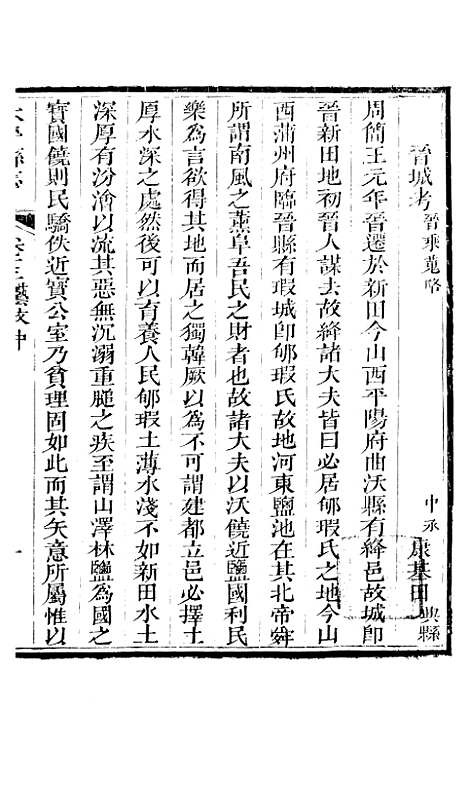 晉城考晉乘蒐略
中丞康基田興縣
周簡王元年晉遷於新田今山西平陽府曲沃縣有絳邑故城卽
晉新田地初晉人謀去故絳諸大夫皆曰必居郇瑕氏之地今山
西蒲州府臨晉縣有瑕城卽郇瑕氏故地河東鹽池在其北帝舜
所謂南風之薰阜吾民之財者也故諸大夫以沃饒近鹽國利民
樂為言欲得其地而居之獨韓厥以為不可謂建都立邑必擇土
厚水深之處然後可以育養人民郇瑕土薄水淺不如新田水土
深厚有汾澮以流其惡無沉溺重膇之疾至謂山澤林鹽為國之
寶國饒則民驕佚近寶公室乃貧理固如此而其矢意所屬惟以
太平縣志 卷十三藝文中 一